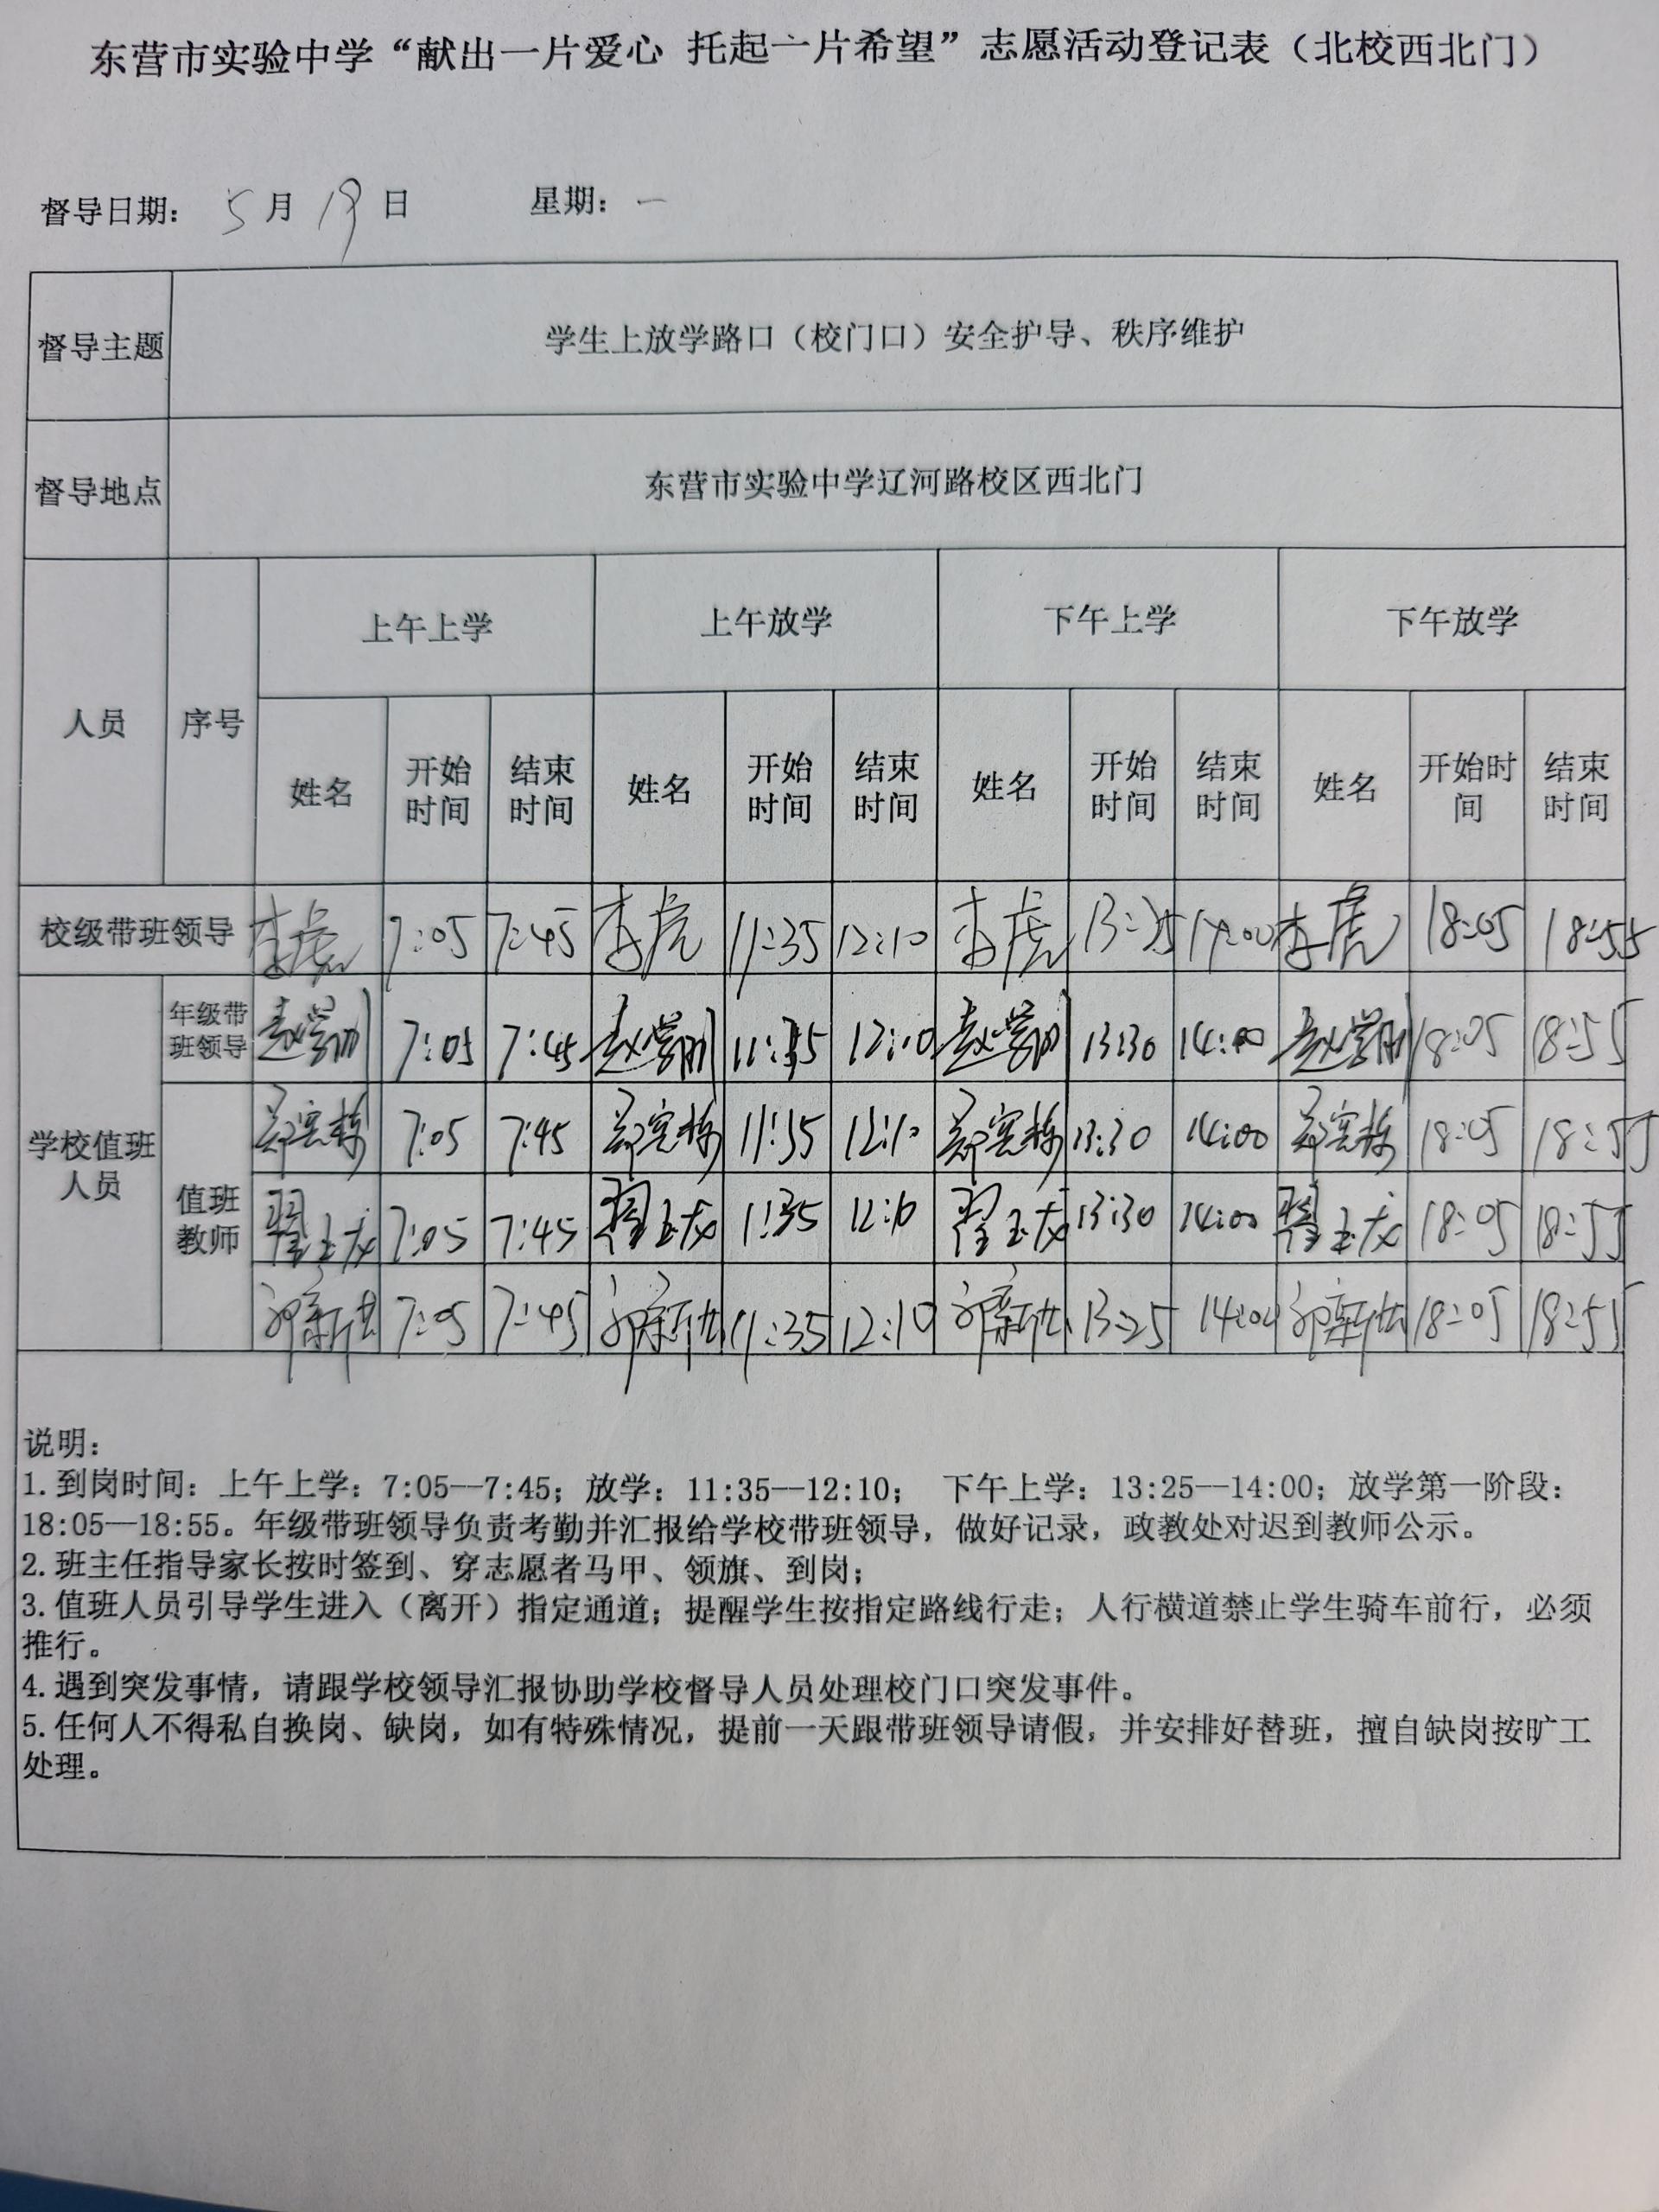 东营市实验中学“献出一片爱心 托起一片希望”志愿活动登记表（北校西北门）
督导日期： 5 月 19 日 星期： 一
督导主题 学生上放学路口（校门口）安全护导、秩序维护
督导地点 东营市实验中学辽河路校区西北门
人员 序号 上午上学 上午放学 下午上学 下午放学
姓名 开始时间 结束时间 姓名 开始时间 结束时间 姓名 开始时间 结束时间 姓名 开始时间 结束时间
校级带班领导 李虎 7:05 7:45 李虎 11:35 12:10 李虎 13:25 14:00 李虎 18:05 18:55
学校值班人员 年级带班领导 7:05 7:45 11:35 12:10 13:30 14:00 18:05 18:55
值班教师 郑宪栋 7:05 7:45 郑宪栋 11:35 12:10 郑宪栋 13:30 14:00 郑宪栋 18:05 18:55
翟玉龙 7:05 7:45 翟玉龙 11:35 12:10 翟玉龙 13:30 14:00 翟玉龙 18:05 18:55
7:05 7:45 11:35 12:10 13:25 14:00 18:05 18:55
说明：
1.到岗时间：上午上学：7:05—7:45；放学：11:35—12:10； 下午上学：13:25—14:00；放学第一阶段：
18:05—18:55。年级带班领导负责考勤并汇报给学校带班领导，做好记录，政教处对迟到教师公示。
2.班主任指导家长按时签到、穿志愿者马甲、领旗、到岗；
3.值班人员引导学生进入（离开）指定通道；提醒学生按指定路线行走；人行横道禁止学生骑车前行，必须
推行。
4.遇到突发事情，请跟学校领导汇报协助学校督导人员处理校门口突发事件。
5.任何人不得私自换岗、缺岗，如有特殊情况，提前一天跟带班领导请假，并安排好替班，擅自缺岗按旷工
处理。